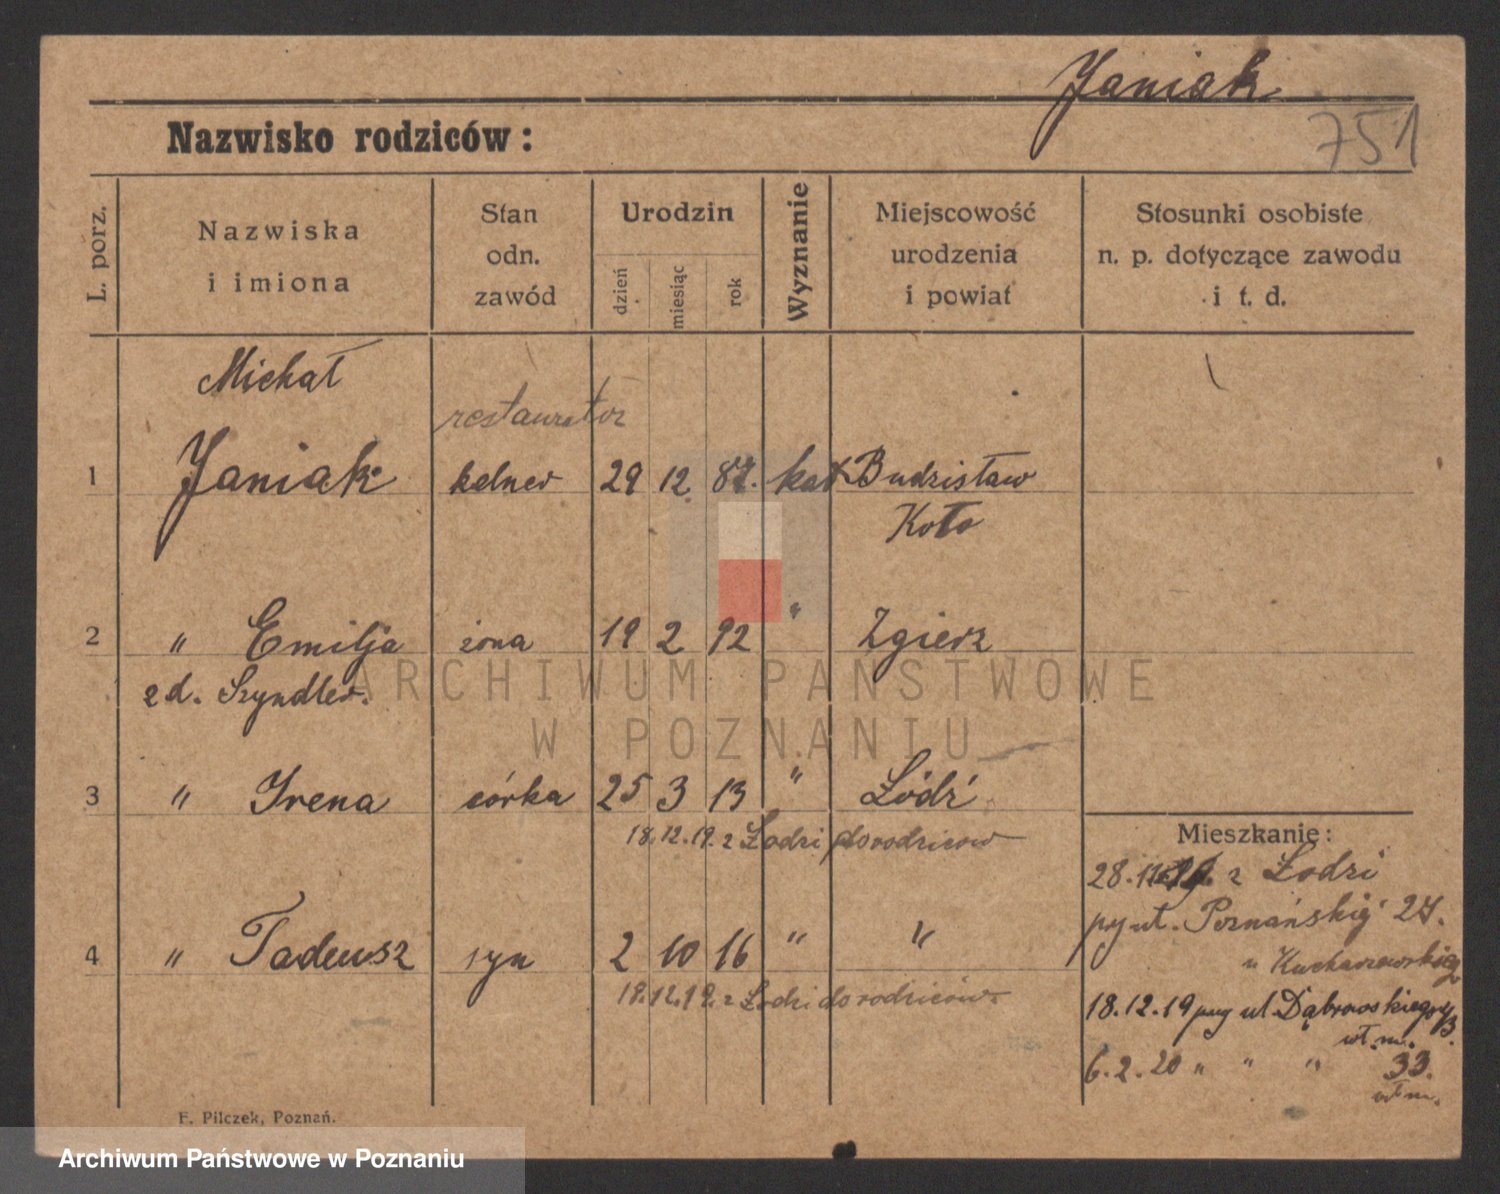 Janiak
751
Nazwisko rodziców:
L. porz.
Nazwiska
i imiona
Stan
odn.
zawód
Urodzin
dzień
miesiąc
rok
Wyznanie
Miejscowość
urodzenia
i powiat
Stosunki osobiste
n. p. dotyczące zawodu
i t. d.
Michał
restaurator
1 Janiak kelner 29 12 87. kat Budzisław
Koło
2 " Emilja żona 19 2 92 " Zgierz
z d. Szyndler.
3 " Irena córka 25 3 13 " Łódź
18.12.19. z Łodzi do rodziców
4 " Tadeusz syn 2 10 16 " "
18.12.19. z Łodzi do rodziców
Mieszkanie:
28. z Łodzi
ul. Poznański 27.
u Kucharzewskieg
18.12.19 ul Dąbrowskiego
wł. m.
6.2.20 " " " 33.
wł m.
F. Pilczek, Poznań.
ARCHIWUM PAŃSTWOWE
W POZNANIU
Archiwum Państwowe w Poznaniu